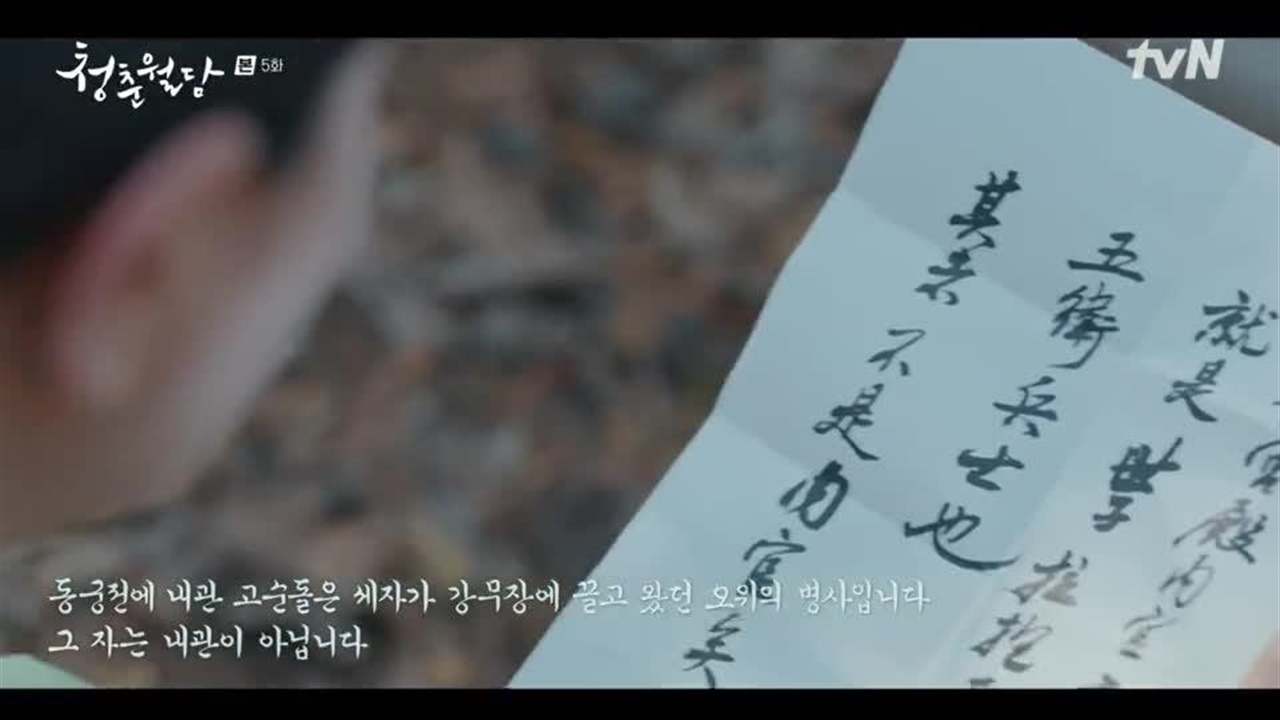 청춘월담 본 5화
tvN
就是
五衛兵士也
其者 不是內官矣
동궁전에 내관 고순돌은 세자가 강무장에 끌고 왔던 오위의 병사입니다
그 자는 내관이 아닙니다